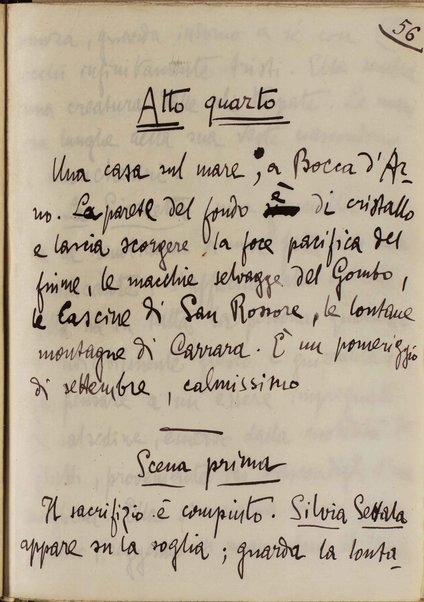 56
Atto quarto
Una casa sul mare, a Bocca d'Ar-
no. La parete del fondo è di cristallo
e lascia scorgere la foce pacifica del
fiume, le macchie selvagge del Gombo,
le Cascine di San Rossore, le lontane
montagne di Carrara. È un pomeriggio
di settembre, calmissimo
Scena prima
Il sacrifizio è compiuto. Silvia Settala
appare su la soglia; guarda la lonta-